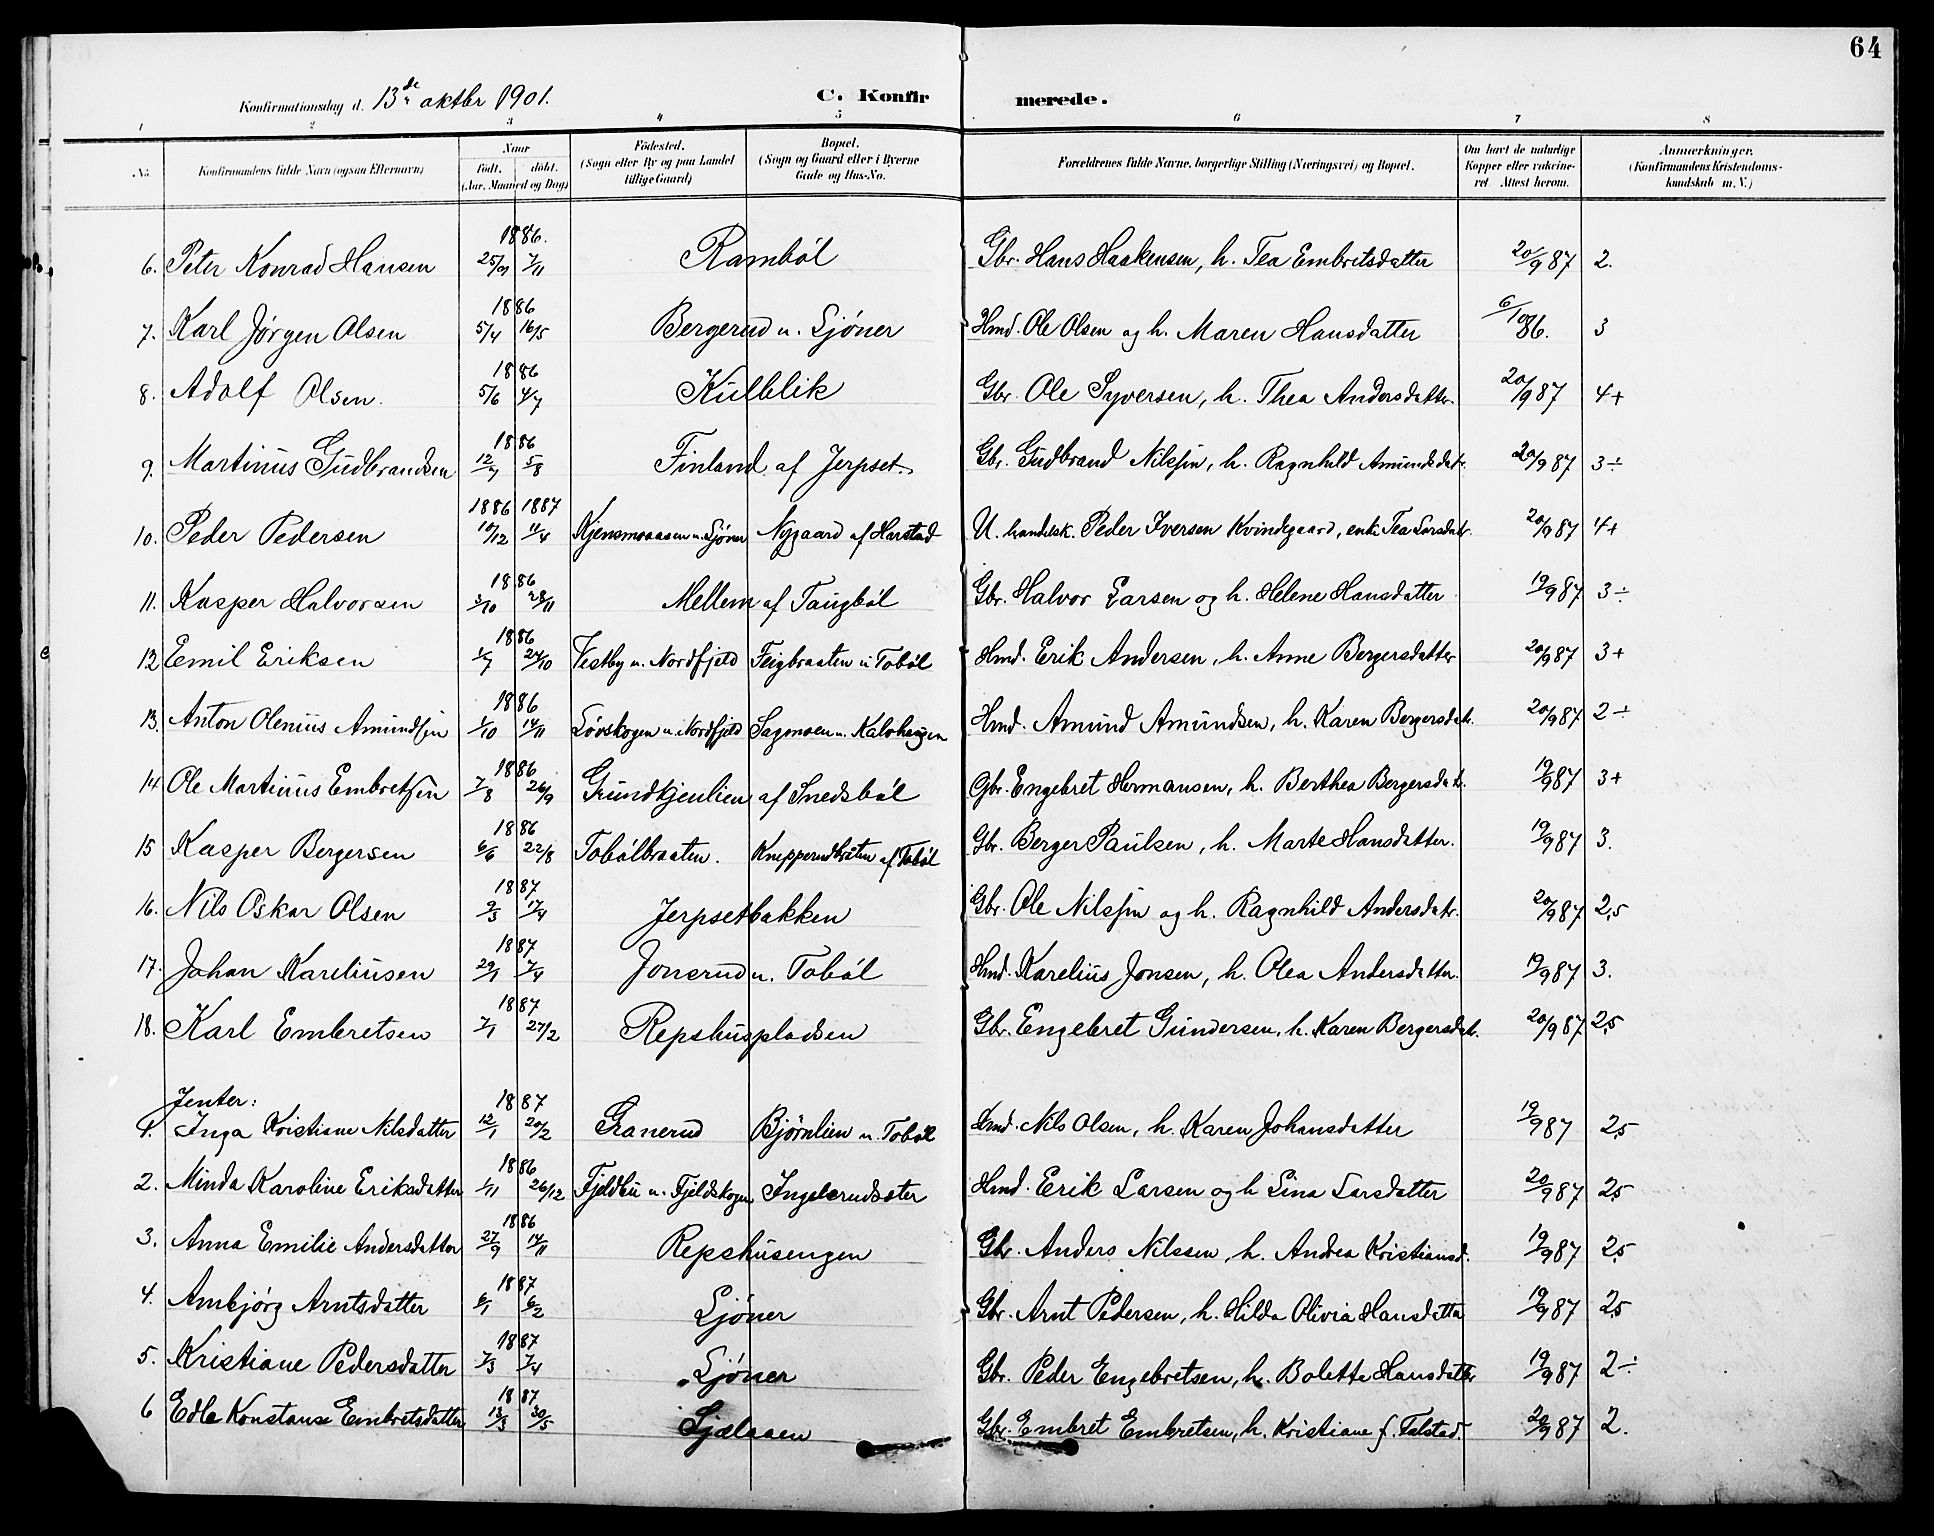 64
Konfirmationsdag d. 13de oktbr 1901. C. Konfirmerede.
1 2 3 4 5 6 7 8
No. Konfirmandens fulde Navn (ogsaa Efternavn) Naar født. døbt. (Aar, Maaned og Dag) Födested. (Sogn eller By og paa Landet tillige Gaard) Bopæl. (Sogn og Gaard eller i Byerne Gade og Hus-No. Forældrenes fulde Navne, borgerlige Stilling (Næringsvei) og Bopæl. Om havt de naturlige Kopper eller vakcineret. Attest herom. Anmærkninger. (Konfirmandens Kristendomskundskab m. V.)
6. Peter Konrad Hansen 1886. 25/9 7/11 Rambøl Gbr. Hans Haakensen, h. Tea Embretsdatter 20/9 87 2.
7. Karl Jørgen Olsen 1886 5/4 16/5 Bergerud u. Sjöner Hmd. Ole Olsen og h. Maren Hansdatter 6/10 86. 3
8. Adolf Olsen. 1886 5/6 4/7 Kulblik Gbr. Ole Syversen, h. Thea Andersdatter. 20/9 87 4+
9. Martinus Gudbrandsen 1886 12/7 5/8 Finland af Jerpset. Gbr. Gudbrand Nilssen, h. Ragnhild Amundsdatr. 20/9 87 3÷
10. Peder Pedersen 1886 1887 10/12 11/4 Kjensmoaasen u. Sjöner Nygaard af Harstad U. handelsk. Peder Iversen Kvindegaard, enke Tea Larsdatr. 20/9 87 4+
11. Kasper Halvorsen 1886 3/10 28/11 Mellem af Taugbøl Gbr. Halvor Larsen og h. Helene Hansdatter 19/9 87 3÷
12 Emil Eriksen 1886 1/7 24/10 Vestby u. Nordfjeld Feigbraaten u Tobøl Hmd. Erik Andersen, h. Anne Bergersdatter 20/9 87 3+
13. Anton Olenius Amundsen 1886 1/10 14/11 Løvskogen u. Nordfjeld Sagmoen u. Kalvhaugen Hmd. Amund Amundsen, h. Karen Bergersdatr. 20/9 87 2÷
14 Ole Martinus Embretsen 1886 7/8 26/9 Grundtjenlien af Snedsbøl Gbr. Engebret Hermansen, h. Berthea Bergersdatr. 19/9 87 3+
15 Kasper Bergersen 1886 6/6 22/8 Tobølbraaten. Knepperudbråten af Tobøl Gbr. Berger Paulsen, h. Marte Hansdatter. 19/9 87 3.
16. Nils Oskar Olsen 1887 9/3 17/4 Jerpsetbakken Gbr. Ole Nilssen og h. Ragnhild Andersdatr. 20/9 87 2,5
17. Johan Kareliusen 1887 29/1 7/4 Jonsrud u. Tobøl Hmd. Karelius Jonsen, h. Olea Andersdatter. 19/9 87 3.
18. Karl Embretsen 1887 7/1 27/2 Repshuspladsen Gbr. Engebret Gundersen, h. Karen Bergersdatr. 20/9 87 2,5
Jenter:
1. Inga Kristiane Nilsdatter 1887 12/1 20/2 Granerud Bjørnlien u. Tobøl Hmd. Nils Olsen, h. Karen Johansdatter 19/9 87 2,5
2. Minda Karoline Eriksdatter 1886 1/11 26/12 Fjeldbu u. Fjeldskogen Ingelsrudsæter Hmd. Erik Larsen og h Lina Larsdatter 20/9 87 2,5
3. Anna Emilie Andersdatter 1886 27/9 14/11 Repshusengen Gbr. Anders Nilssen, h. Andrea Kristiansd. 19/9 87 2,5
4. Ambjørg Arntsdatter 1887 6/1 6/2 Sjöner Gbr. Arnt Pedersen, h. Hilda Olivia Hansdatter 19/9 87 2,5
5. Kristiane Pedersdatter 1887 7/3 7/4 Sjöner Gbr. Peder Engebretsen, h. Bolette Hansdatter 19/9 87 2÷
6 Edle Konstanse Embretsdatter 1887 13/3 30/5 Sjølaaen Gbr. Embret Embretsen, h. Kristiane f. Talstad. 20/9 87 2.